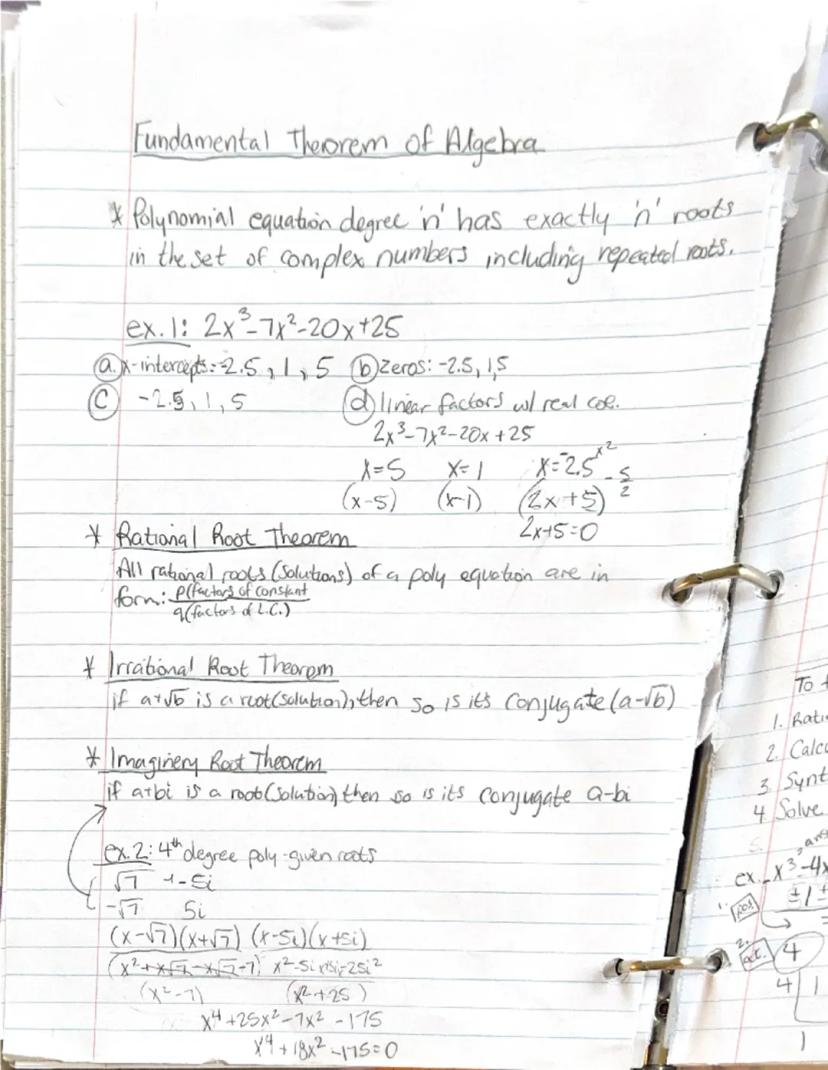 Fundamental Theorem of Algebra
* Polynomial equation degree 'n' has exactly 'n' roots
in the set of complex numbers including repeated roots.
ex. 1: 2x³-7x²-20x+25
a. x-intercepts: -2.5, 1, 5 b zeros: -2.5, 1, 5
C -2.5, 1, 5 d linear factors w/ real coe.
2x³-7x²-20x+25
x=5 x=1 x=-2.5 x2 -5/2
(x-5) (x-1) (2x+5)
2x+5=0
* Rational Root Theorem
All rational roots (solutions) of a poly equation are in
form: p(factors of constant
q(factors of L.C.)
* Irrational Root Theorem
if a+√b is a root (solution), then so is it's conjugate (a-√b)
* Imaginery Root Theorem
if a+bi is a root (solution) then so is it's conjugate a-bi
ex. 2: 4th degree poly-given roots
√7 -5i
-√7 5i
(x-√7)(x+√7) (x-5i)(x+5i)
(x²+x√7-x√7-7) x²-5ix+5i-25i²
(x²-7) (x²+25)
x⁴+25x²-7x²-175
x⁴+18x²-175=0
To
1. Rati
2. Calc
3. Synt
4. Solve
ex. -x³-4x
1. pos.
±1 ±
2. act. 4
4 1
1